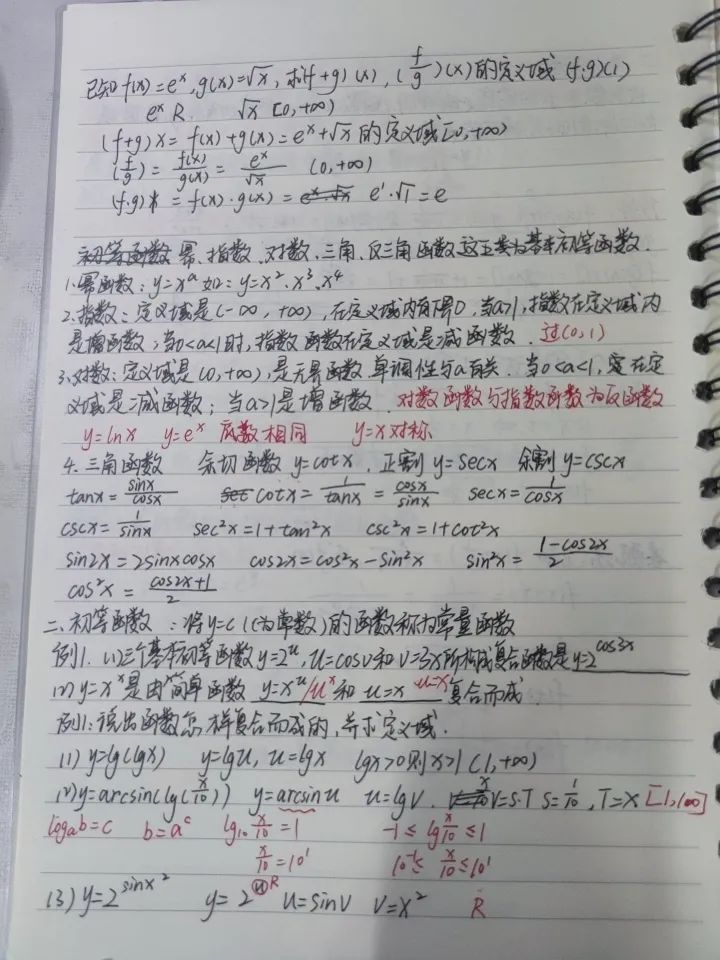 已知f(x)=e^x, g(x)=√x, 求(f+g)(x), (f/g)(x)的定义域 (f·g)(1)
e^x R √x [0,+∞)
(f+g)x = f(x)+g(x)=e^x+√x 的定义域[0,+∞)
(f/g)= f(x)/g(x) = e^x/√x (0,+∞)
(f·g)x = f(x)·g(x)= e^x·√x e^1·√1=e
初等函数 幂、指数、对数、三角、反三角函数这五类为基本初等函数.
1.幂函数: y=x^a 如: y=x^2、x^3、x^4
2.指数: 定义域是(-∞,+∞), 在定义域内有下界0, 当a>1, 指数在定义域内
是增函数, 当0<a<1时, 指数函数在定义域是减函数. 过(0,1)
3.对数: 定义域是(0,+∞), 是无界函数, 单调性与a有关. 当0<a<1, 在定
义域是减函数; 当a>1是增函数. 对数函数与指数函数为反函数
y=lnx y=e^x 底数相同 y=x对称
4.三角函数 余切函数 y=cotx, 正割 y=secx 余割 y=cscx
tanx=sinx/cosx sec cotx=1/tanx=cosx/sinx secx=1/cosx
cscx=1/sinx sec^2x=1+tan^2x csc^2x=1+cot^2x
sin2x=2sinxcosx cos2x=cos^2x-sin^2x sin^2x=(1-cos2x)/2
cos^2x=(cos2x+1)/2
二、初等函数 : 将y=c (c为常数)的函数称为常量函数
例1. (1)三个基本初等函数y=2^u, u=cosv和v=3x所构成复合函数是y=2^cos3x
(2) y=x^x是由简单函数 y=x^u/u^x 和 u=x u=x 复合而成.
例1: 说出函数怎样复合而成的, 并求定义域.
(1) y=lg(lgx) y=lgu, u=lgx lgx>0则x>1 (1,+∞)
(2) y=arcsin(lg(x/10)) y=arcsinu u=lgv. v=x/10 v=S·T S=1/10, T=x [1,100]
log_a b=c b=a^c lg_10 x/10=1 -1≤lg x/10≤1
x/10=10^1 10^-1≤ x/10≤10^1
(3) y=2^sinx^2 y=2^u R u=sinv v=x^2 R